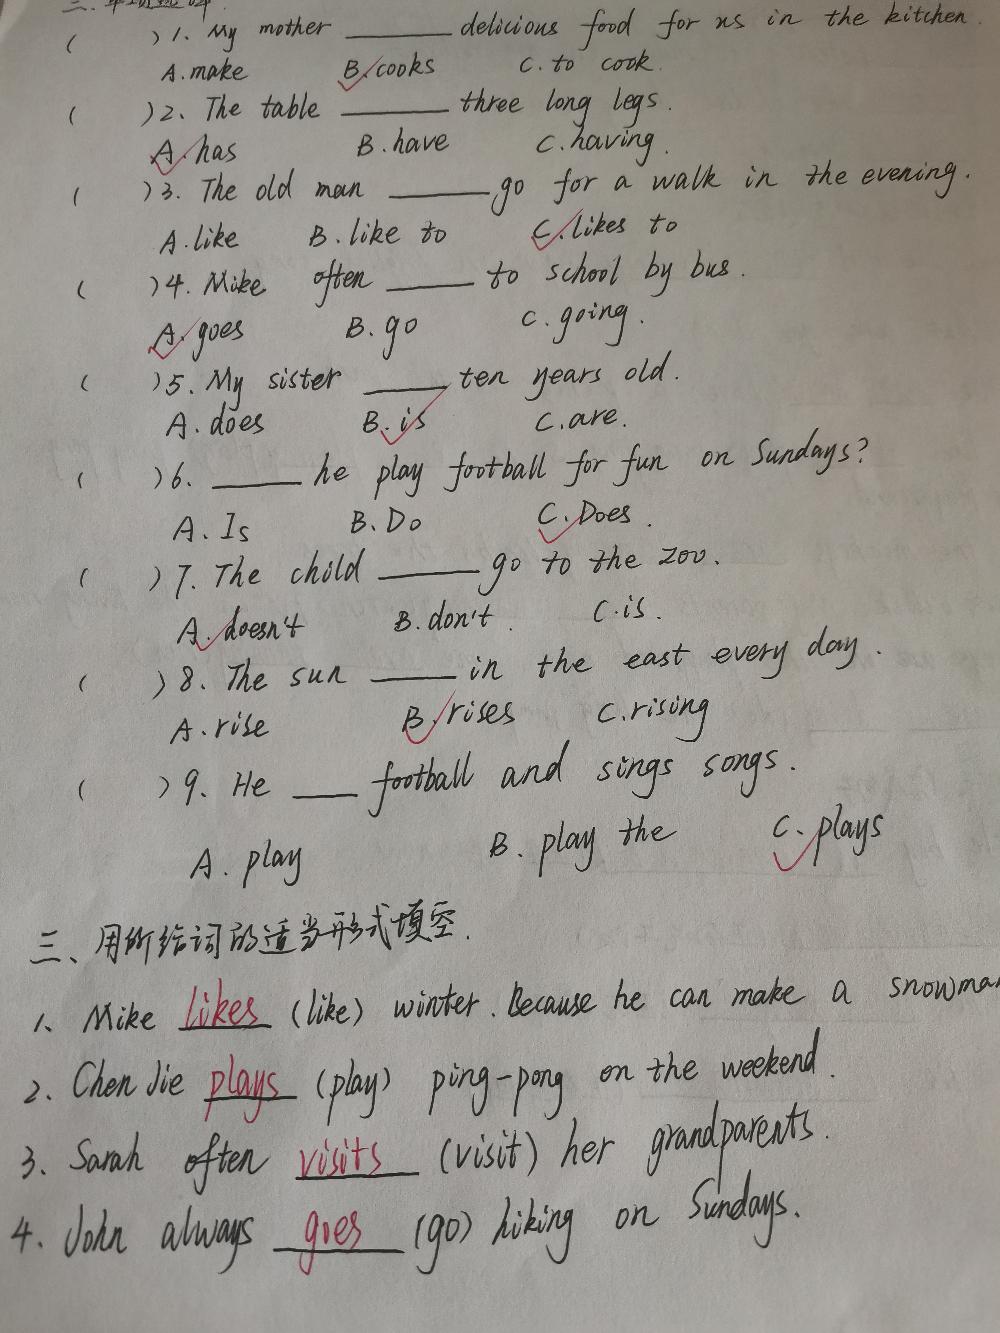 ( )1. My mother ______ delicious food for us in the kitchen
A. make B. cooks C. to cook.
( )2. The table ______ three long legs.
A. has B. have C. having.
( )3. The old man ______ go for a walk in the evening.
A. like B. like to C. likes to
( )4. Mike often ______ to school by bus.
A. goes B. go C. going.
( )5. My sister ______ ten years old.
A. does B. is C. are.
( )6. ______ he play football for fun on Sundays?
A. Is B. Do C. Does.
( )7. The child ______ go to the zoo.
A. doesn't B. don't. C. is.
( )8. The sun ______ in the east every day.
A. rise B. rises C. rising
( )9. He ____ football and sings songs.
A. play B. play the C. plays
三、用所给词的适当形式填空.
1. Mike likes (like) winter. Because he can make a snowman
2. Chen Jie plays (play) ping-pong on the weekend.
3. Sarah often visits (visit) her grandparents.
4. John always goes (go) hiking on Sundays.